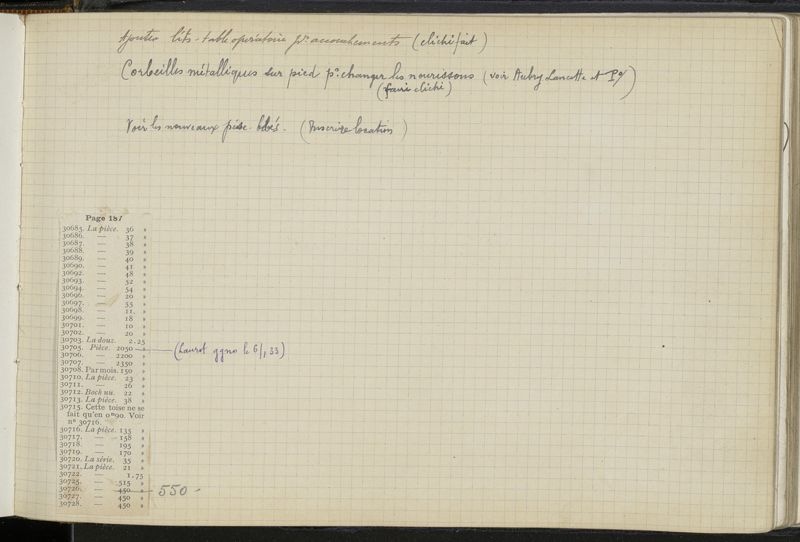 Ajouter lits-table opératoire pr accouchements (cliché fait)
Corbeilles métalliques sur pied pr changer les nourissons (voir Aubry Lancette et P9)
(faire cliché)
Voir les nouveaux pèse-bébés. (Inscrire location)
Page 187
30685. La pièce. 36 »
30686. — 37 »
30687. — 38 »
30688. — 39 »
30689. — 40 »
30690. — 41 »
30692. — 48 »
30693. — 52 »
30694. — 54 »
30696. — 20 »
30697. — 55 »
30698. — 11. »
30699. — 18 »
30701. — 10 »
30702. — 20 »
30703. La douz. 2.25
30705. Pièce. 2050 » (Laurot le 6/1 33)
30706. — 2200 »
30707. — 2350 »
30708. Par mois. 150 »
30710. La pièce. 23 »
30711. — 26 »
30712. Boch nu. 22 »
30713. La pièce. 38 »
30715. Cette toise ne se
fait qu'en 0m90. Voir
n° 30716.
30716. La pièce. 135 »
30717. — 158 »
30718. — 195 »
30719. — 170 »
30720. La série. 35 »
30721. La pièce. 21 »
30722. — 1.75
30725. — 515 »
30726. — 450 » 550 -
30727. — 450 »
30728. — 450 »